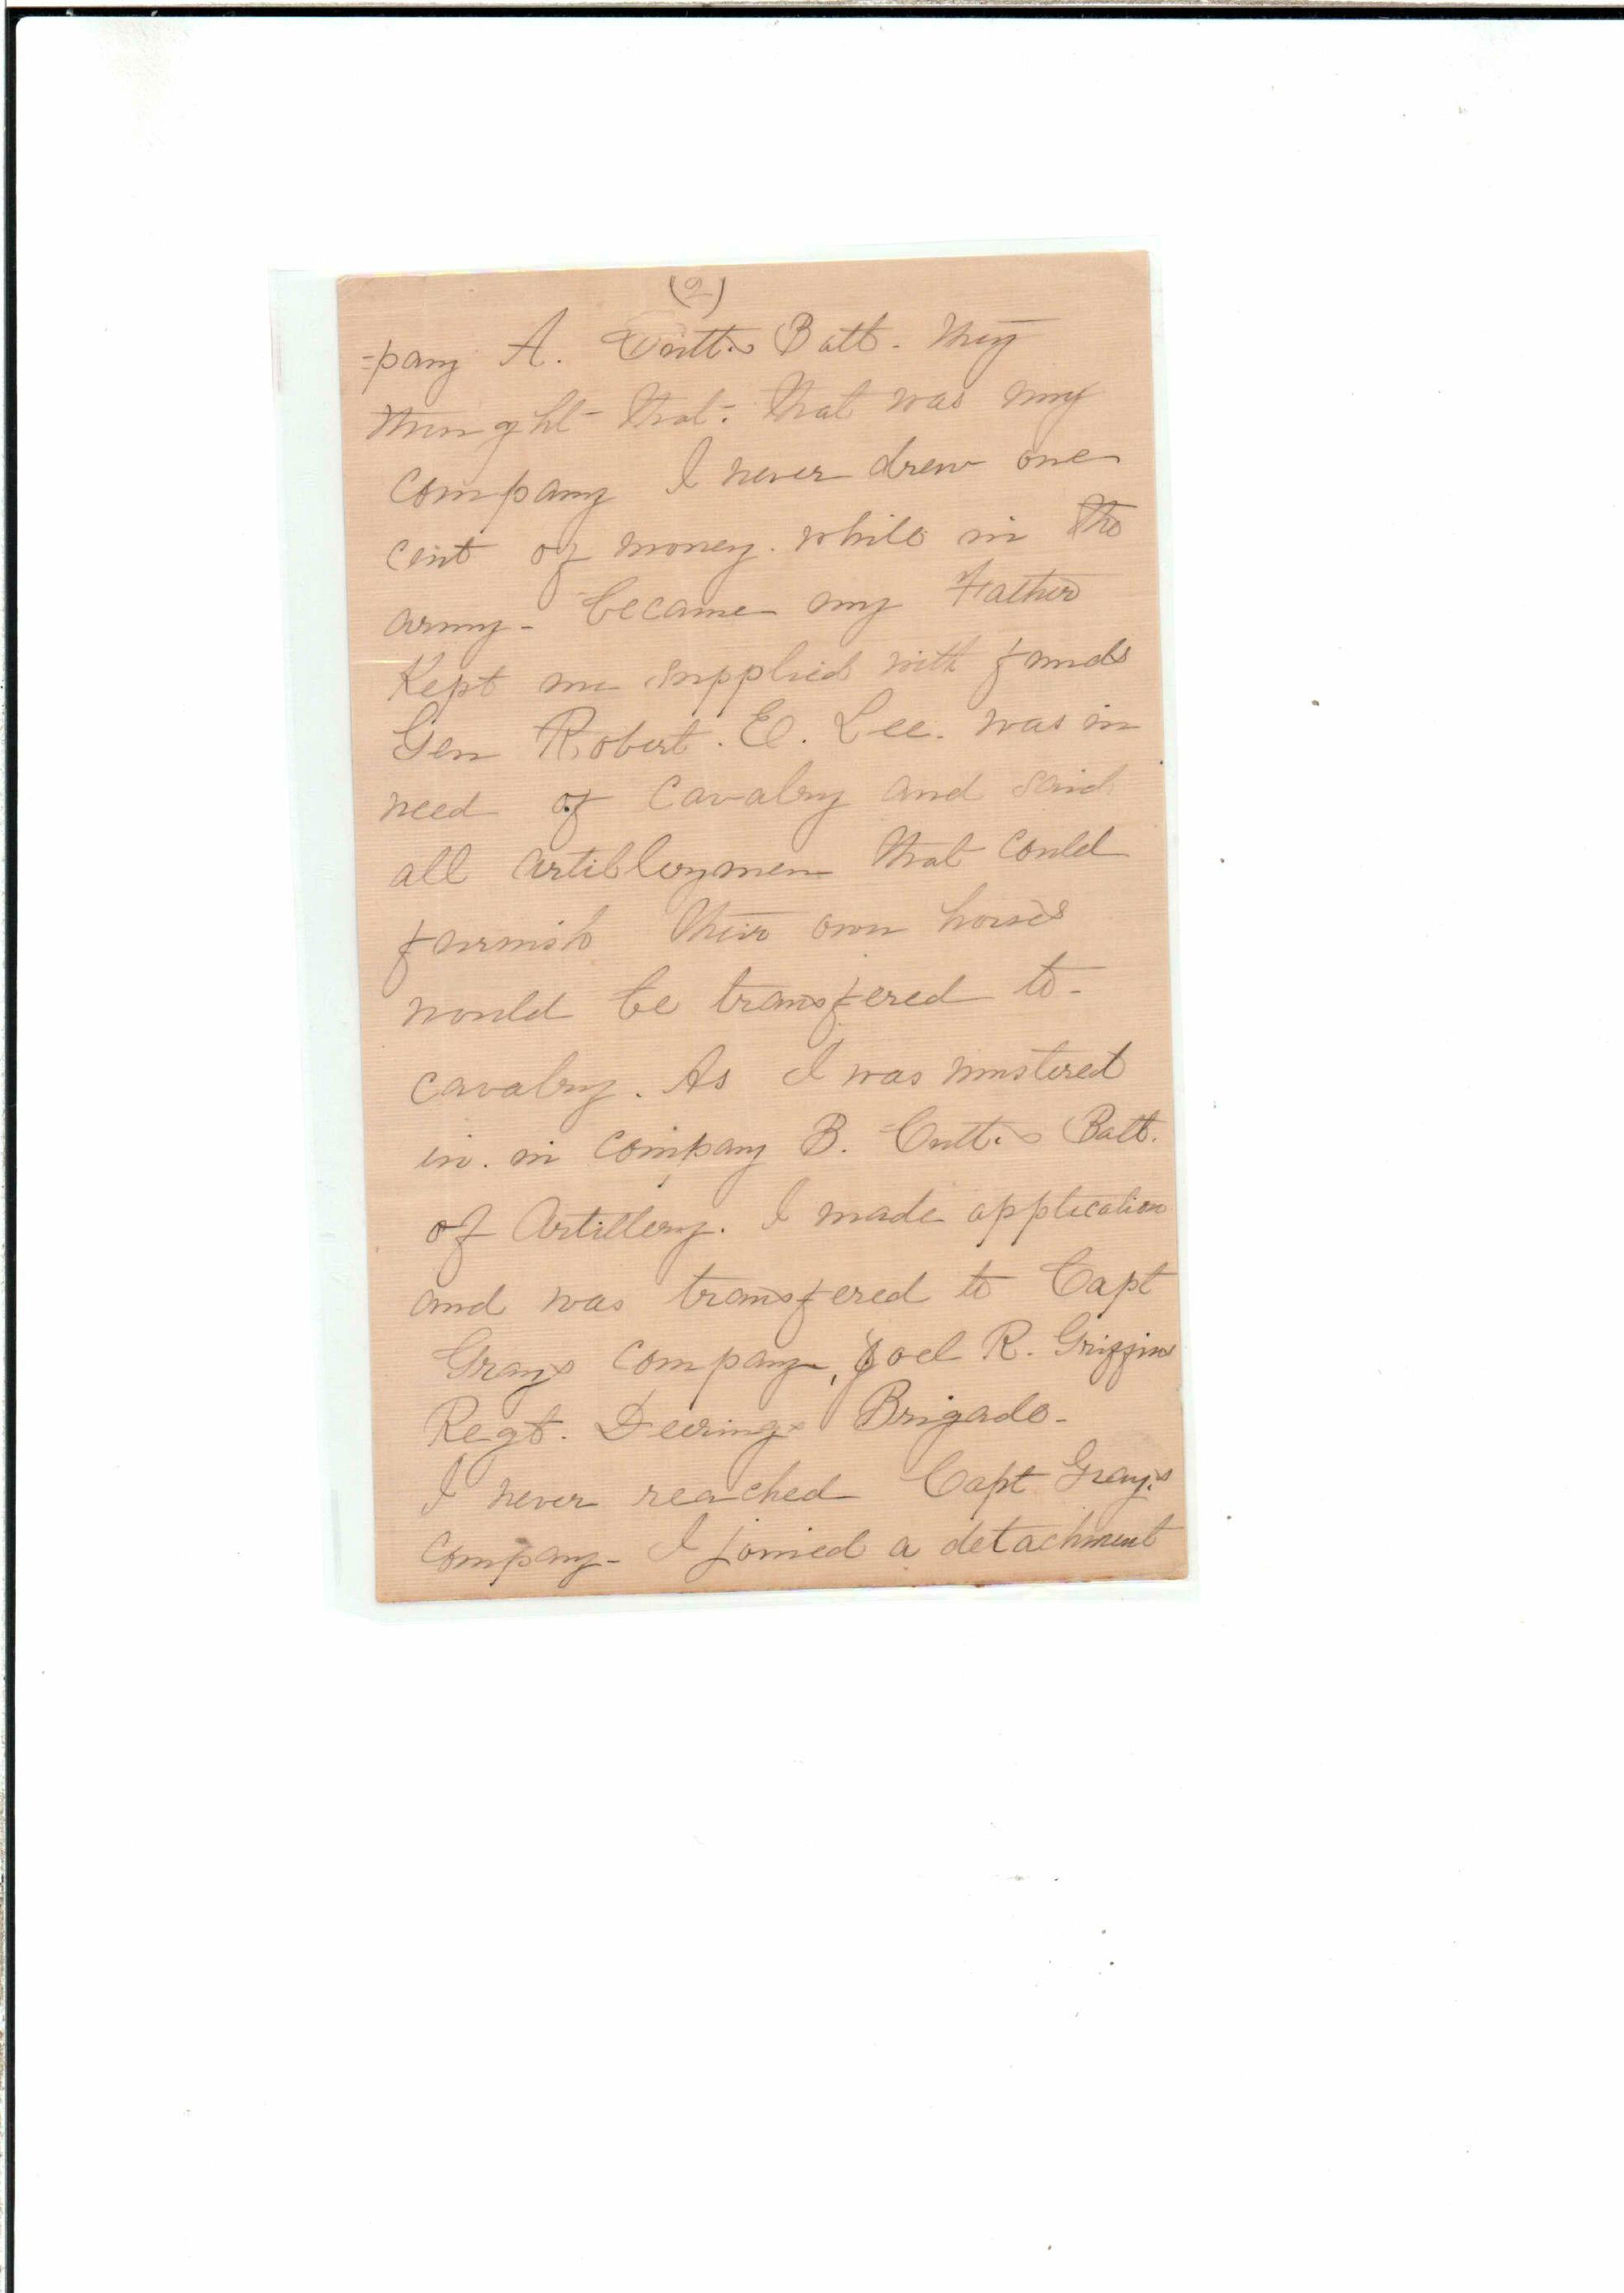 (2)
-pany A. Cutt's Batt. They
thought that. that was my
company I never drew one
cent of money. while in the
army - because my Father
Kept me supplied with funds
Gen Robert. E. Lee. was in
need of Cavalry and said
all Artillerymen that could
furnish their own horses
would be transfered to -
cavalry. As I was mustered
in. in Company B. Cutt's Batt.
of Artillery. I made application
and was transfered to Capt
Grays Company, Joel R. Griffins
Regt. Deerings Brigade -
I never reached Capt Gray's
Company - I joined a detachment